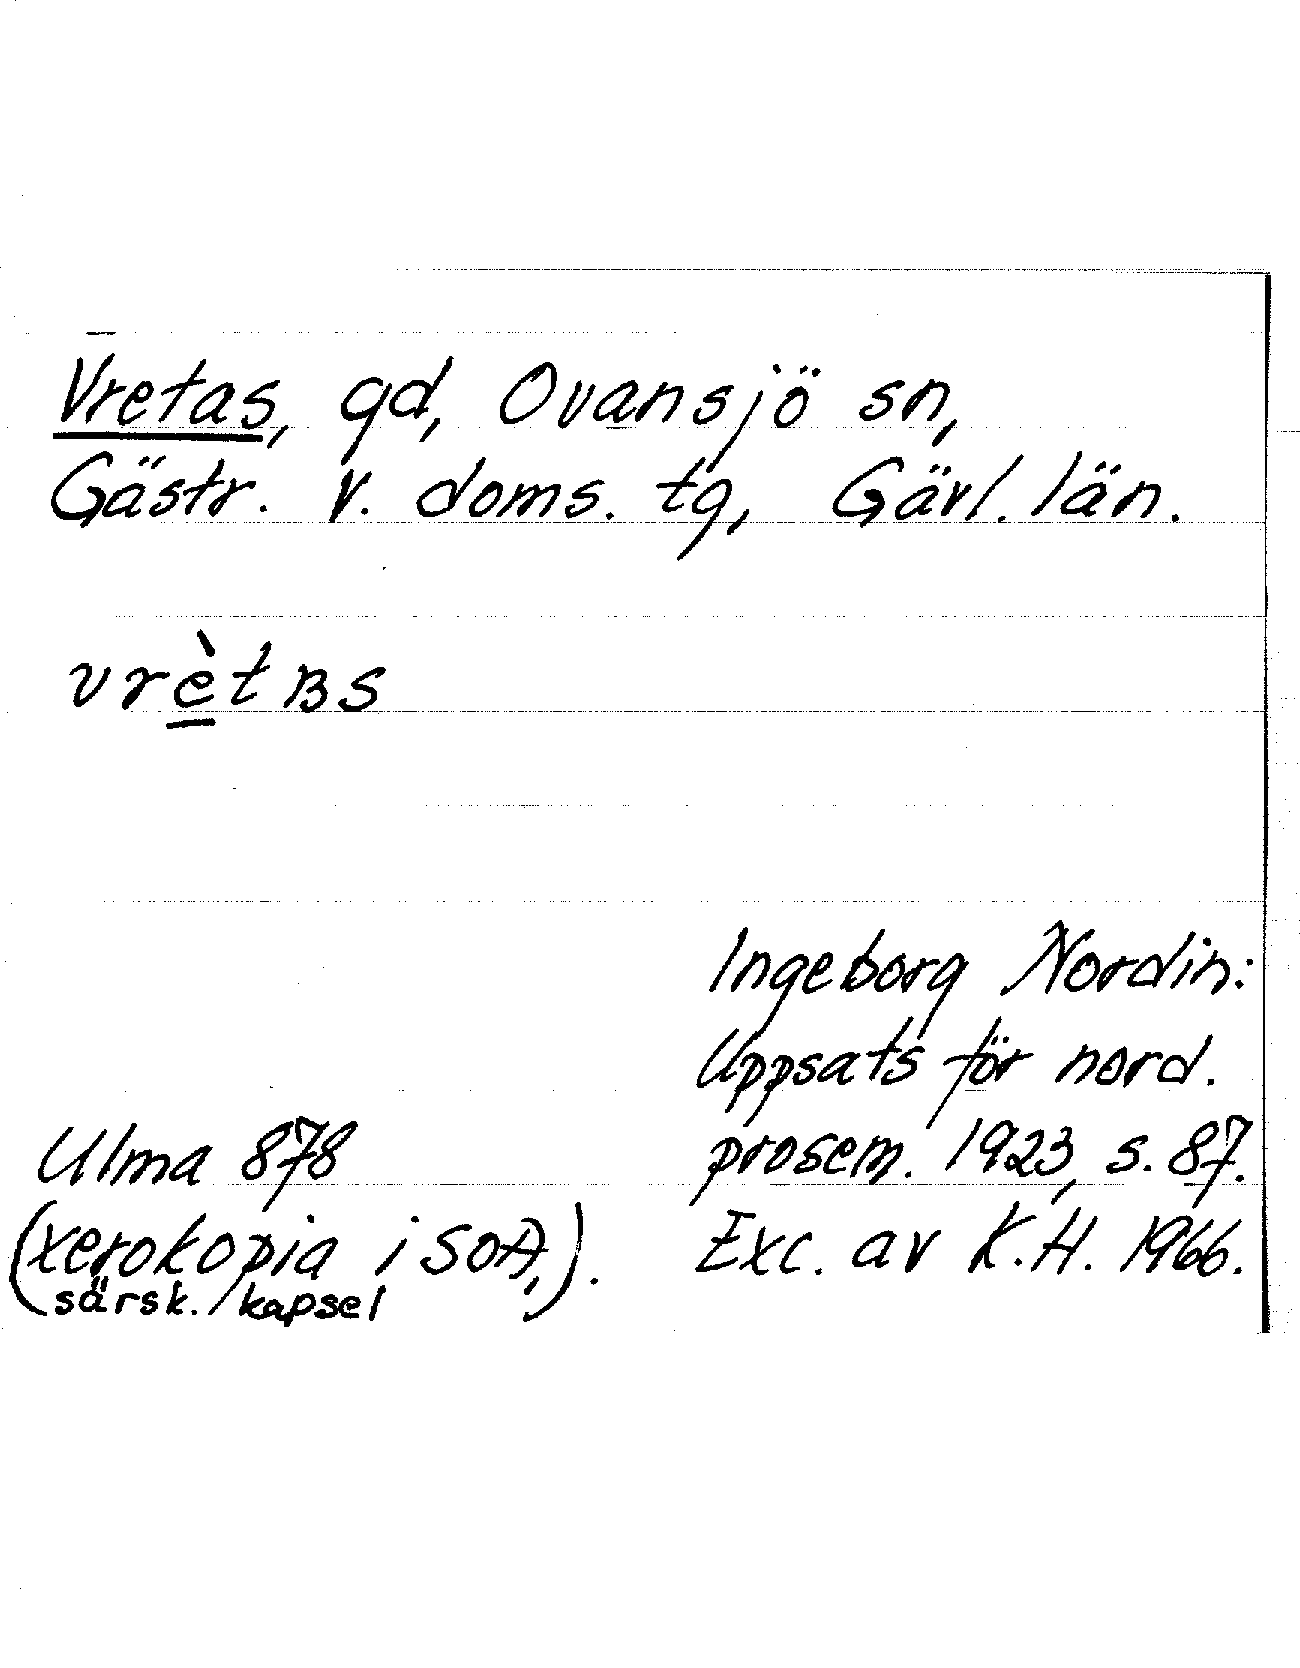 Vretas, gd, Ovansjö sn,
Gästr. v. doms. tg, Gävl. län.
vrètʙs
Ingeborg Nordin:
Uppsats för nord.
prosem. 1923, s. 87.
Exc. av K.H. 1966.
Ulma 878
(xerokopia i SOA,).
särsk. kapsel